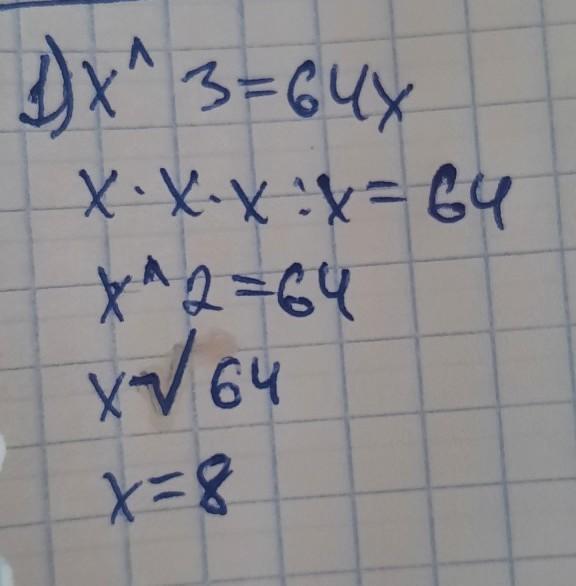 1) x^ 3 = 64x
x · x · x : x = 64
x^2 = 64
x √ 64
x = 8